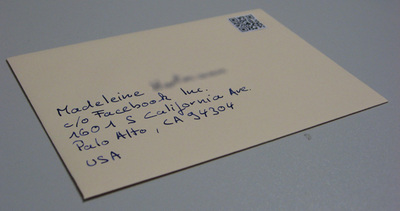 Madeleine
c/o Facebook Inc.
1601 S California Ave.
Palo Alto, CA 94304
USA